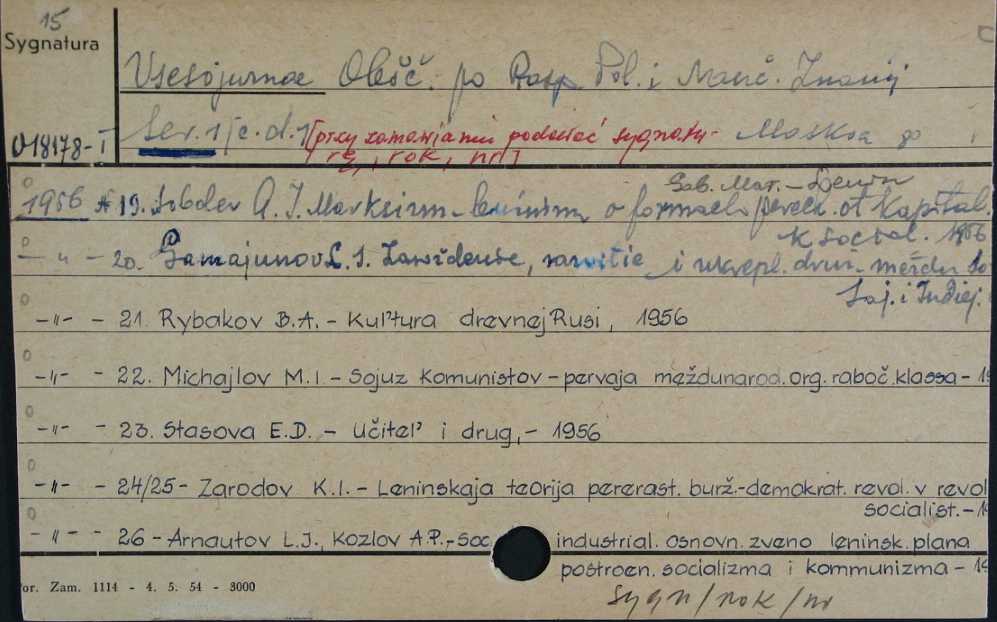 15
Sygnatura
Vsesojuznae Obšč. po Rasp Pol. i Nauč. Znanij
U18178-I Ser. 1 [c.d. 1] [przy zamawianiu podawać sygnatu- Moskva
rę, rok, nr]
Sab. Mar. - Lenin
1956 № 19. Sobolev A. I. Marksizm-leninizm o formach perech. ot kapital.
k social. 1956
-"- - 20. Gamajunov L. S. , razvitie i ukrepl. druž. meždu So
Soj. i Indiej.
-"- - 21. Rybakov B.A. - Kul'tura drevnej Rusi, 1956
-"- - 22. Michajlov M.I. - Sojuz Komunistov - pervaja meždunarod. org. raboč. klassa - 19
-"- - 23. Stasova E.D. - Učitel' i drug, - 1956
-"- - 24/25 - Zarodov K.I. - Leninskaja teorija pererast. burž.-demokrat. revol. v revol
socialist. - 19
-"- - 26 - Arnautov L.J., Kozlov A.P., - Soc industrial. osnovn. zveno leninsk. plana
postroen. socializma i kommunizma - 19
or. Zam. 1114 - 4. 5. 54 - 3000
sygn/rok/nr